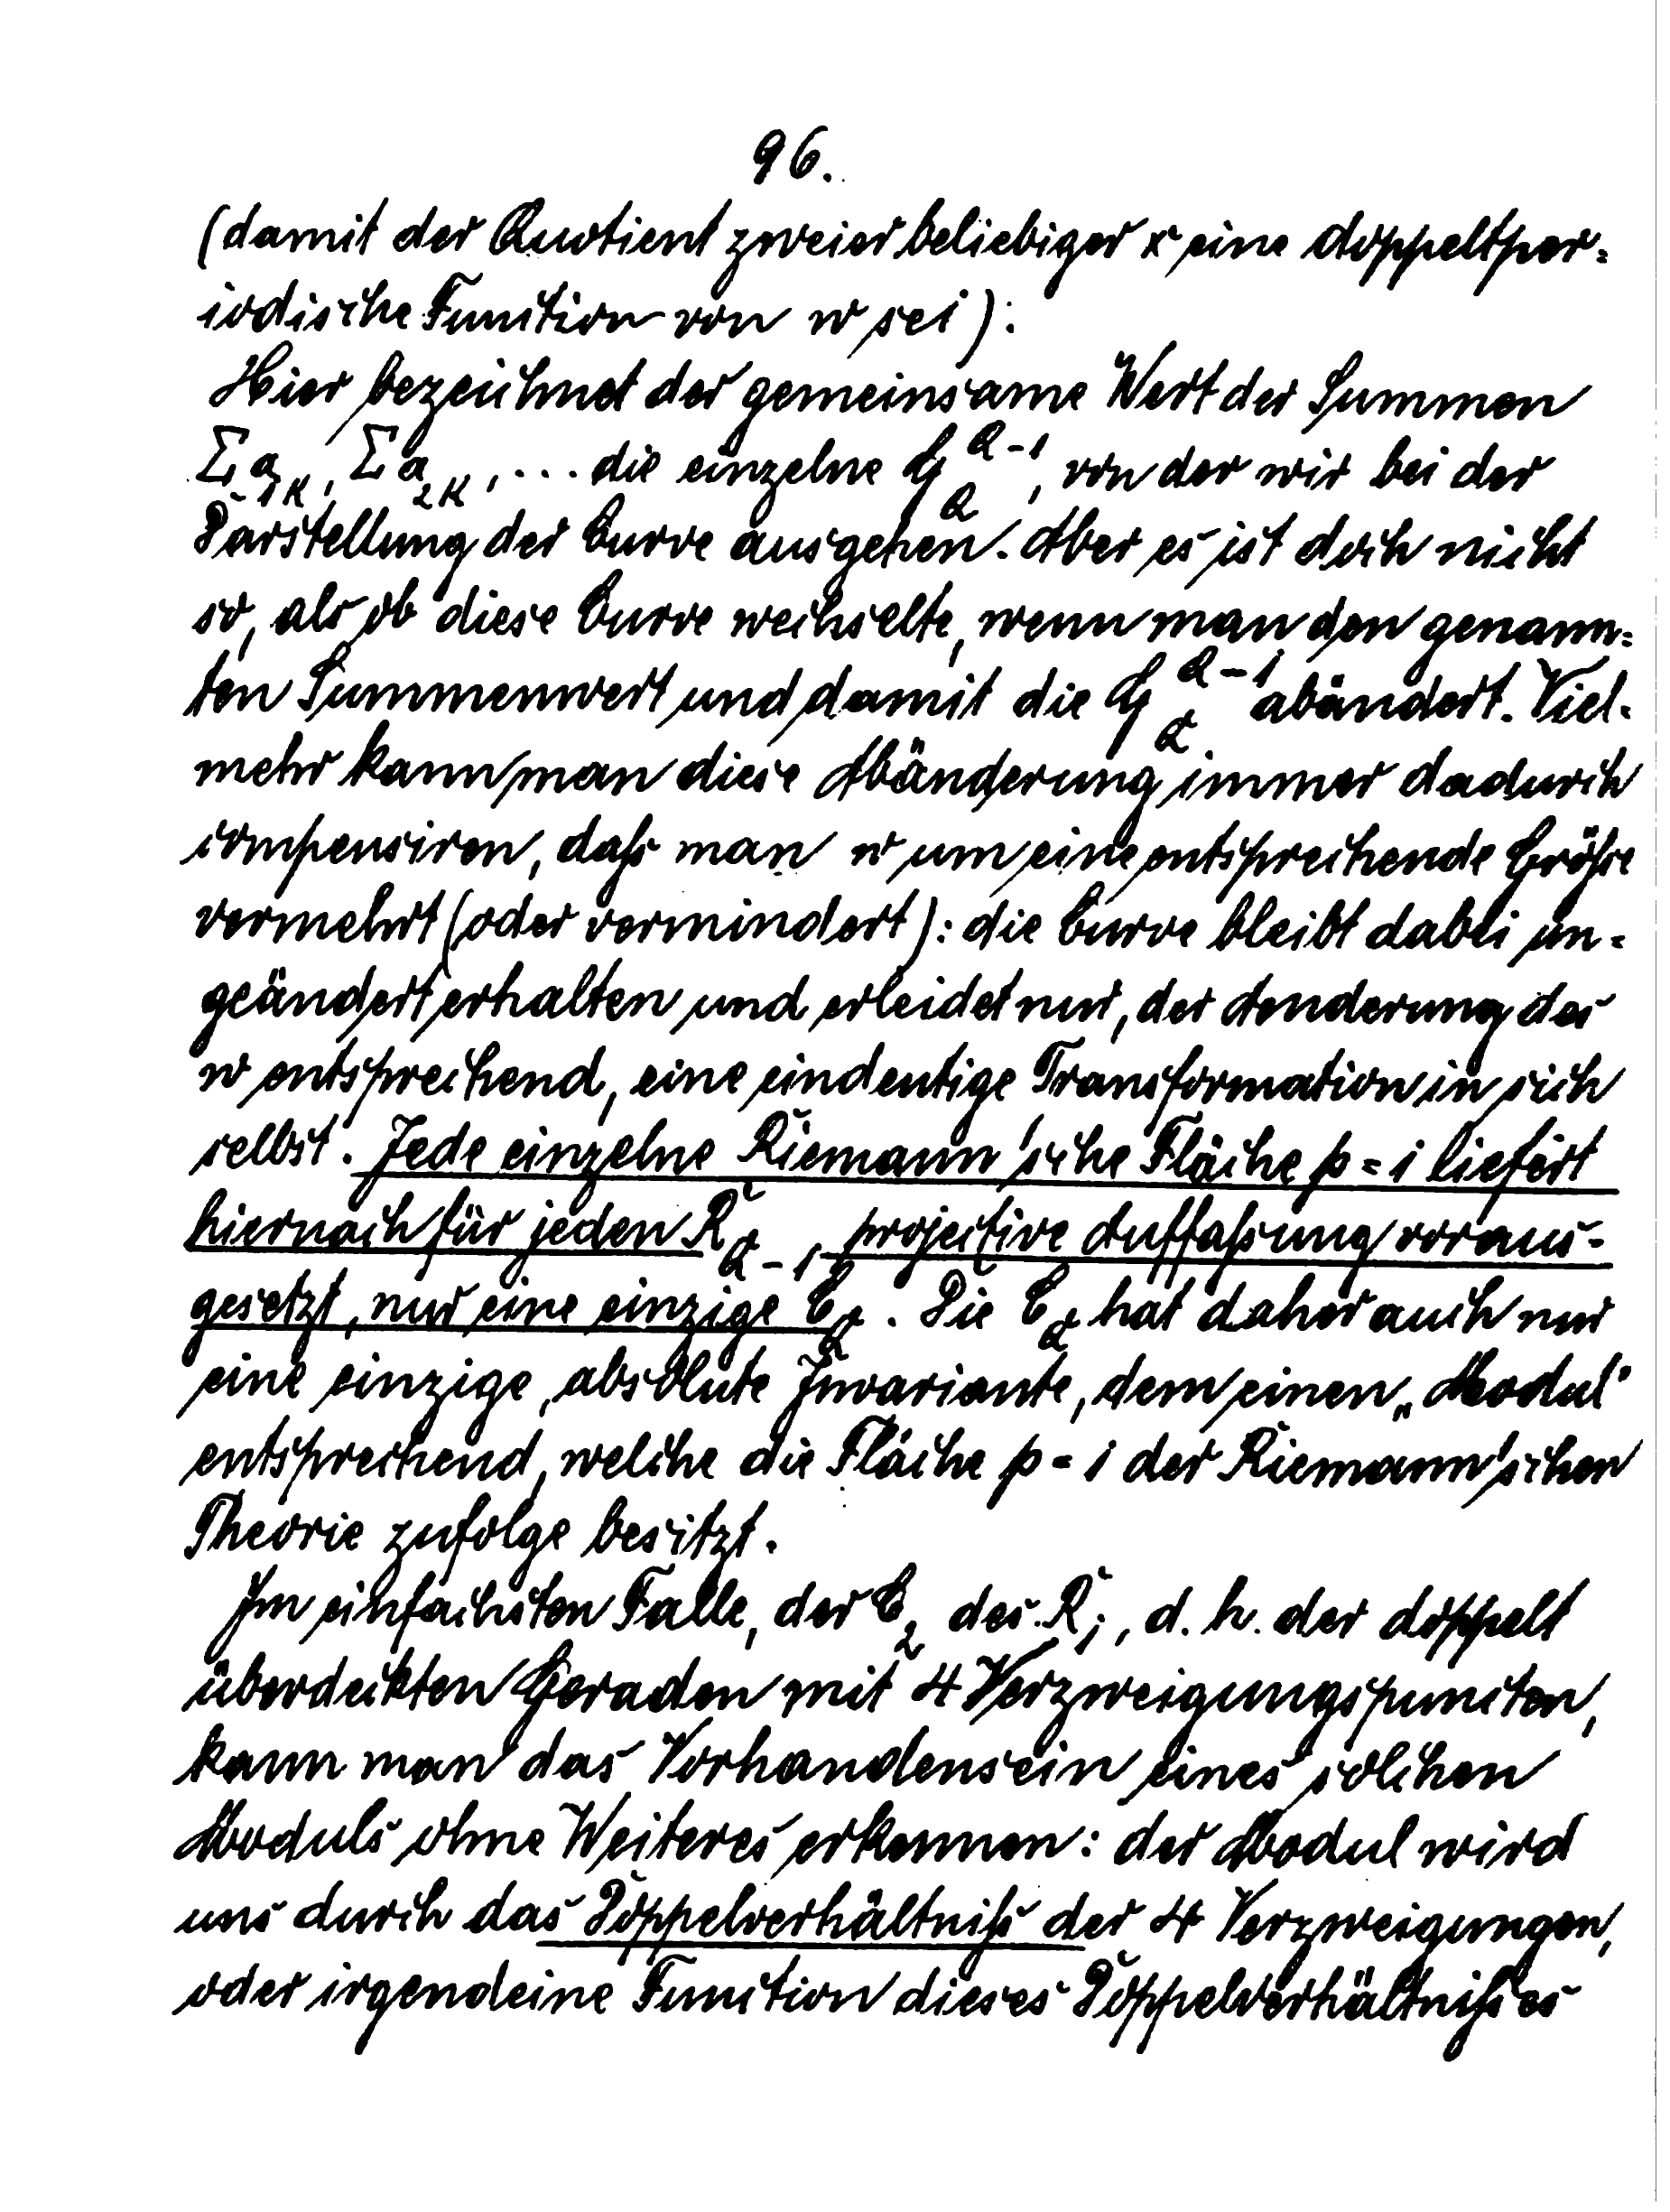 96.
(damit der Quotient zweier beliebiger x eine doppeltper-
iodische Function von w sei).
Hier bezeichnet der gemeinsame Wert der Summen
Σa₁ₖ, Σa₂ₖ, ... die einzelne G_Q^{Q-1}, von der wir bei der
Darstellung der Curve ausgehen. Aber es ist doch nicht
so, als ob diese Curve wechselte, wenn man den genann-
ten Summenwert und damit die G_Q^{Q-1} abändert. Viel-
mehr kann man diese Abänderung immer dadurch
compensiren, daß man w um eine entsprechende Größe
vermehrt (oder vermindert): die Curve bleibt dabei un-
geändert erhalten und erleidet nur, der Aenderung des
w entsprechend, eine eindeutige Transformation in sich
selbst. Jede einzelne Riemann'sche Fläche p=1 liefert
hiernach für jeden R_{Q-1}, projective Auffaßung voraus-
gesetzt, nur eine einzige C_Q. Die C_Q hat daher auch nur
eine einzige, absolute Invariante, dem einen „Modul"
entsprechend, welche die Fläche p=1 der Riemann'schen
Theorie zufolge besitzt.
Im einfachsten Falle, der C₂ des R₁, d. h. der doppelt
überdeckten Geraden mit 4 Verzweigungspuncten,
kann man das Vorhandensein eines solchen
Moduls ohne Weiteres erkennen: der Modul wird
uns durch das Doppelverhältniß der 4 Verzweigungen,
oder irgendeine Function dieses Doppelverhältnißes